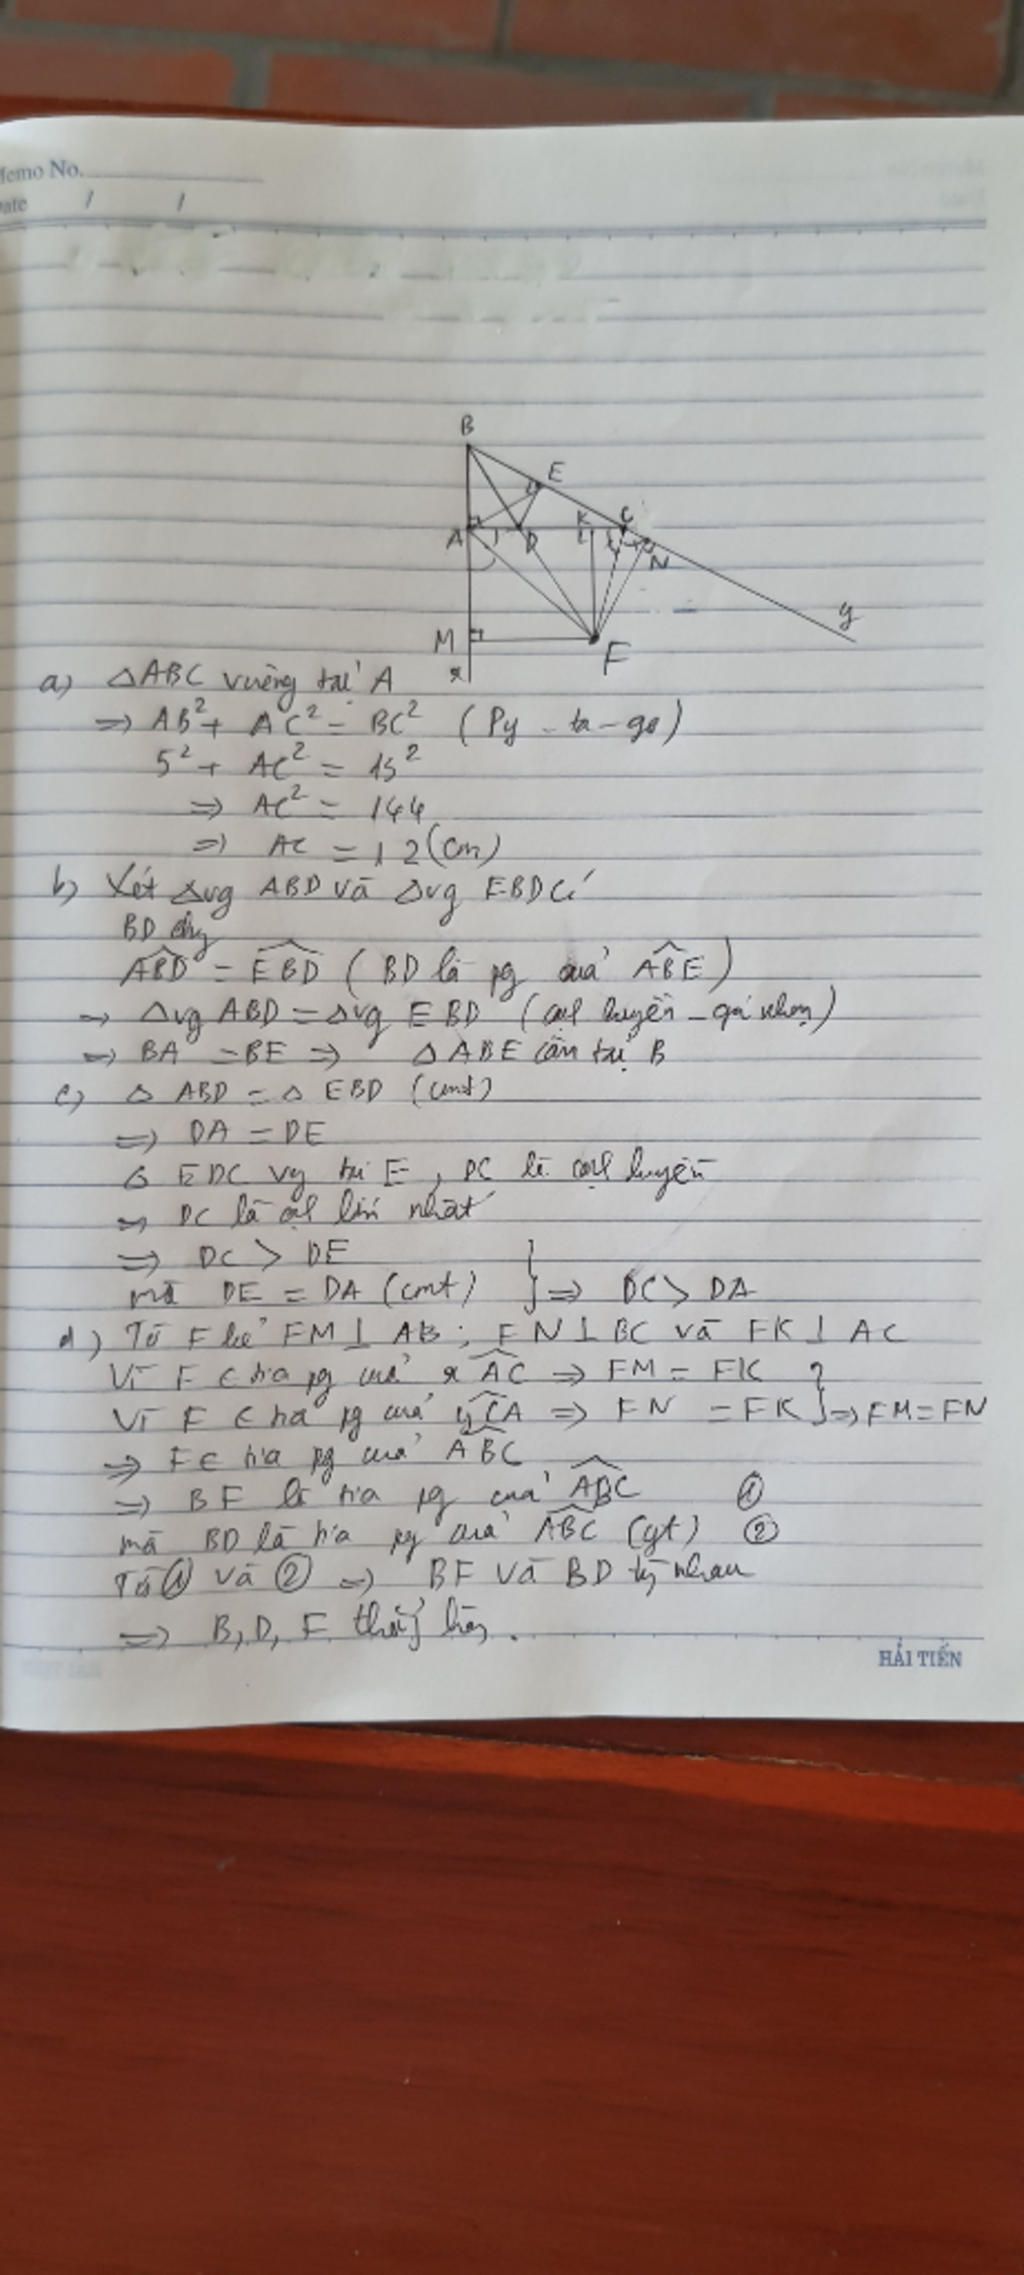 Memo No.
Date / /
B
E
K C
A D N
y
M F
x
a) △ABC vuông tại A
=> AB² + AC² = BC² (Py - ta - go)
5² + AC² = 13²
=> AC² = 144
=> AC = 12 (cm)
b) Xét △vg ABD và △vg EBD có
BD chg
ABD = EBD (BD là pg của ABE)
=> △vg ABD = △vg EBD (cạh huyền - gó nhọn)
=> BA = BE => △ABE cân tại B
c) △ABD = △EBD (cmt)
=> DA = DE
△EDC vg tại E, DC là cạh huyền
=> DC là cạh lớn nhất
=> DC > DE
mà DE = DA (cmt) } => DC > DA
d) Từ F kẻ FM ⊥ AB ; FN ⊥ BC và FK ⊥ AC
Vì F ∈ tia pg của xAC => FM = FK
Vì F ∈ tia pg của yCA => FN = FK } => FM = FN
=> F ∈ tia pg của ABC
=> BF là tia pg của ABC ①
mà BD là tia pg của ABC (gt) ②
Từ ① và ② => BF và BD nhau
=> B, D, F thẳng hàng.
HẢI TIẾN